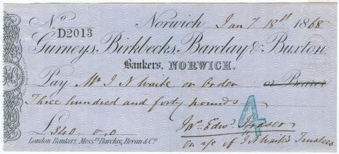 No. D2013 Norwich, Jany 18th 1868
Gurneys, Birkbecks, Barclay & Buxton
Bankers, NORWICH.
Pay Mr J N Waite or Order or Bearer
Three hundred and forty pounds
£340..0..0
4
London Bankers, Messrs. Barclay, Bevan & Co.
on a/c of J N Waite's Trustees